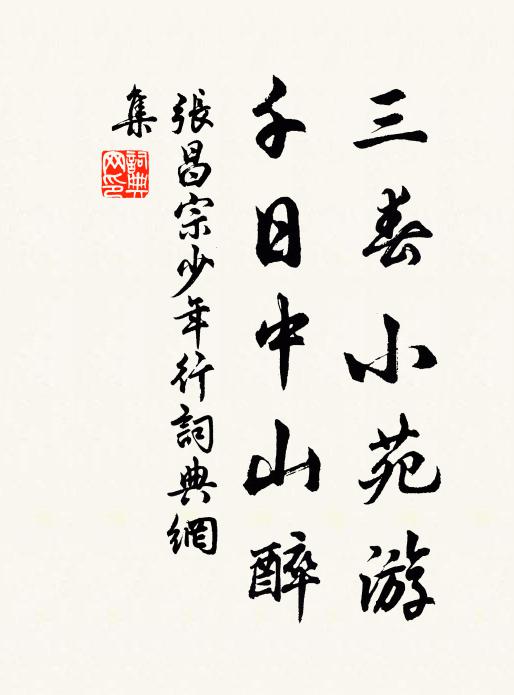 三春小苑游
千日中山醉
張昌宗少年行詞典網
集
詞典
网印